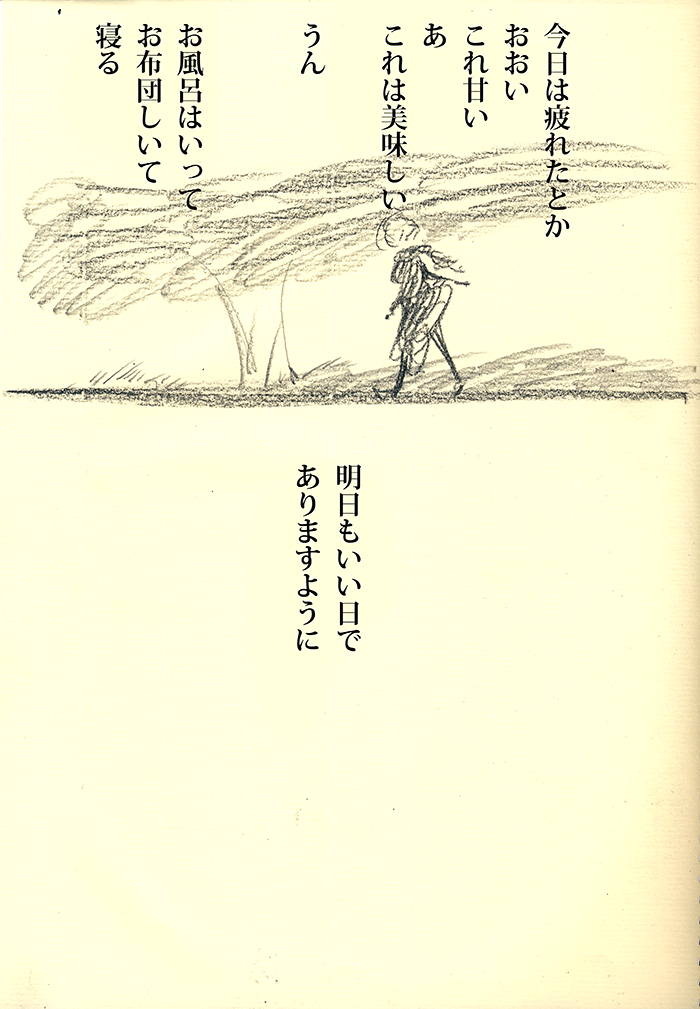 今日は疲れたとか
おおい
これ甘い
あ
これは美味しい
うん
お風呂はいって
お布団しいて
寝る
明日もいい日で
ありますように